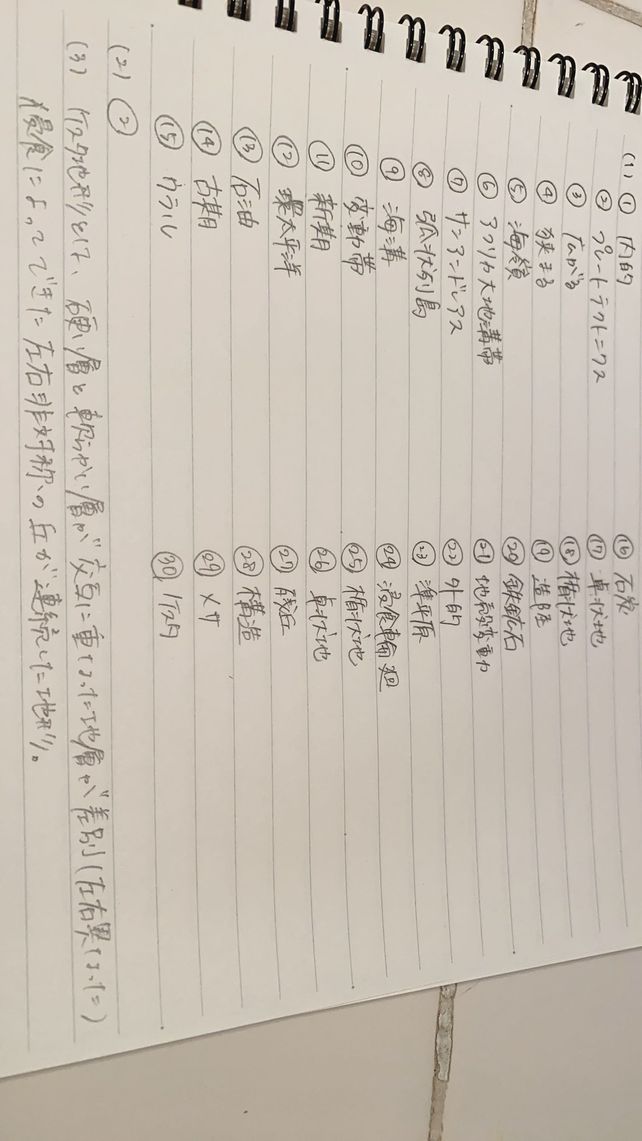 (1) ① 内的
② プレートテクトニクス
③ 広がる
④ 狭まる
⑤ 海嶺
⑥ アフリカ大地溝帯
⑦ サンアンドレアス
⑧ 弧状列島
⑨ 海溝
⑩ 変動帯
⑪ 新期
⑫ 環太平洋
⑬ 石油
⑭ 古期
⑮ ウラル
⑯ 石炭
⑰ 卓状地
⑱ 楯状地
⑲ 造陸
⑳ 鉄鉱石
㉑ 地殻変動
㉒ 外的
㉓ 準平原
㉔ 浸食輪廻
㉕ 楯状地
㉖ 卓状地
㉗ 残丘
㉘ 構造
㉙ メサ
㉚ ケスタ
(2) ②
(3) ケスタ地形といって、硬い層と軟らかい層が交互に重なった地層が差別(左右異なった)
侵食によってできた左右非対称の丘が連続した地形。